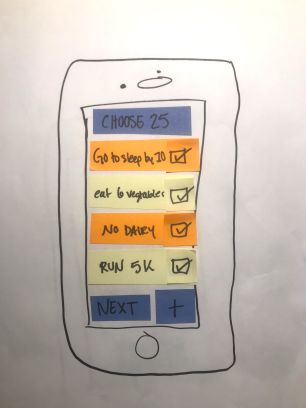 CHOOSE 25
Go to sleep by 10
eat 6 vegetables
NO DAIRY
RUN 5K
NEXT +